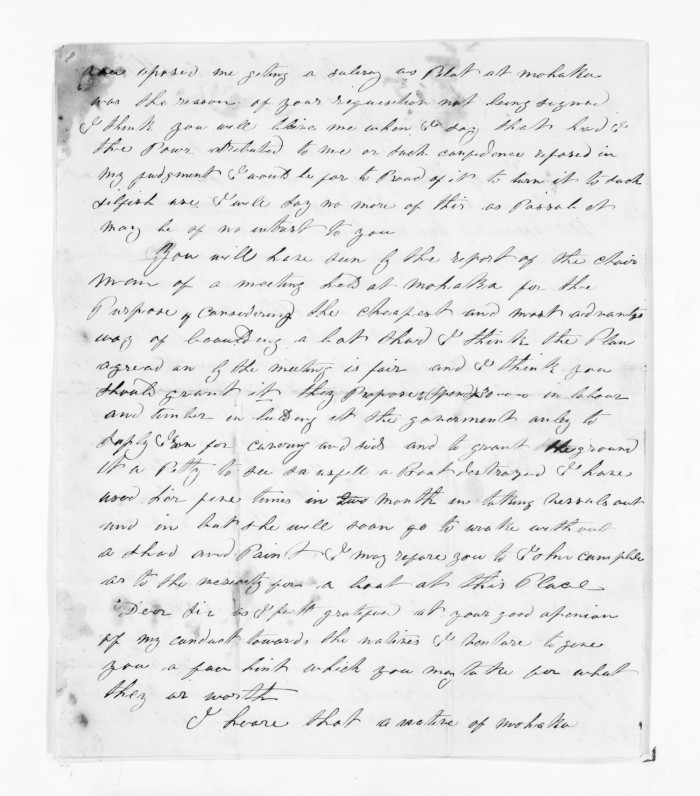 you oposed me geting a salirey as Pilat at mohaka
was the reason of your requesition not being signed
I think you will belive me when I say that had I
the Powr atributed to me or such confidence reposed in
my judgment I would be far to Proud of it to turn it to such
silfish use I will say no more of this as Passable it
may be of no intrest to you
You will have seen by the report of the chair
man of a meeting held at mohaka for the
Purpose of Considering the cheapest and most advantge
way of boaulding a bot shad I think the Plan
agread on by the meeting is fair and I think you
should grant it they Propose to spend in labour
and timber in luding it the goverment onley to
suply Iron for cavoring and sids and to grant the ground
it a Pitty to see so usfull a Boat destroyed I have
used hir five times in two month in taking vessals out
and in but she will soon go to wrake without
a shad and Paint I may refare you to John
as to the nesesity for a boat at this Place
Dear Sir as I felt gratefud at your good openion
of my conduct towards the natives I venture to give
you a few hint which you may take for what
they ar worth
I heare that a native of mohaka